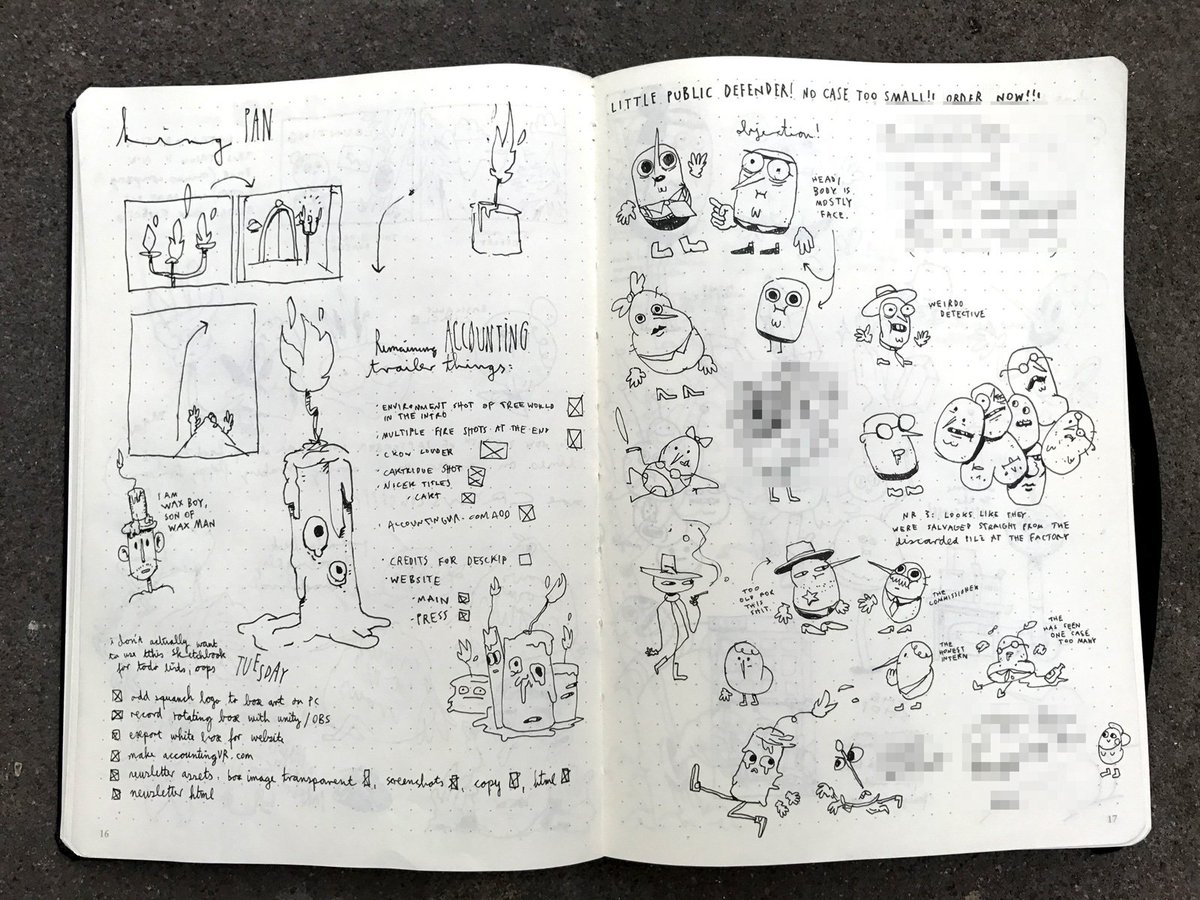 king PAN
Remaining ACCOUNTING
trailer things:
· ENVIRONMENT SHOT OF TREEWORLD
IN THE INTRO
· MULTIPLE FIRE SHOTS AT THE END
LOUDER
· CARTRIDGE SHOT
· NICER TITLES
· CART
· ACCOUNTINGVR.COM ADD
· CREDITS FOR
· WEBSITE
· MAIN
· PRESS
I AM
WAX BOY,
SON OF
WAX MAN
i don't actually want
to use this sketchbook
for todo lists, oops
TUESDAY
add squanch logo to box art on PC
record rotating box with unity/OBS
export white box for website
make accountingVR.com
newsletter assets: box image transparent, screenshots, copy, html
newsletter html
16
LITTLE PUBLIC DEFENDER! NO CASE TOO SMALL!! ORDER NOW!!!
objection!
HEAD/
BODY IS
MOSTLY
FACE.
WEIRDO
DETECTIVE
NR 3: LOOKS LIKE THEY
WERE SALVAGED STRAIGHT FROM THE
discarded PILE AT THE FACTORY
TOO
OLD FOR
THIS
SHIT.
THE
COMMISSIONER
THE
HONEST
INTERN
THE
HAS SEEN
ONE CASE
TOO MANY
17